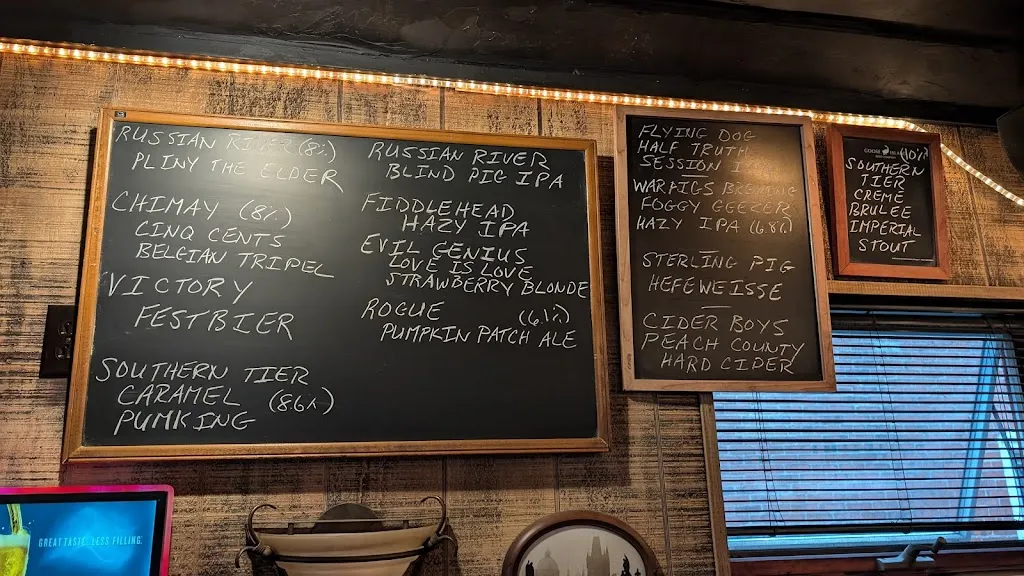 RUSSIAN RIVER (8%)
PLINY THE ELDER
CHIMAY (8%)
CINQ CENTS
BELGIAN TRIPEL
VICTORY
FESTBIER
SOUTHERN TIER
CARAMEL (8.6%)
PUMKING
RUSSIAN RIVER
BLIND PIG IPA
FIDDLEHEAD
HAZY IPA
EVIL GENIUS
LOVE IS LOVE
STRAWBERRY BLONDE
ROGUE (6.1%)
PUMPKIN PATCH ALE
FLYING DOG
HALF TRUTH
SESSION
WARPIGS BREWING
FOGGY GEEZER
HAZY IPA (6.8%)
STERLING PIG
HEFEWEISSE
CIDER BOYS
PEACH COUNTY
HARD CIDER
GOOSE (10%)
SOUTHERN
TIER
CREME
BRULEE
IMPERIAL
STOUT
GREAT TASTE. LESS FILLING.